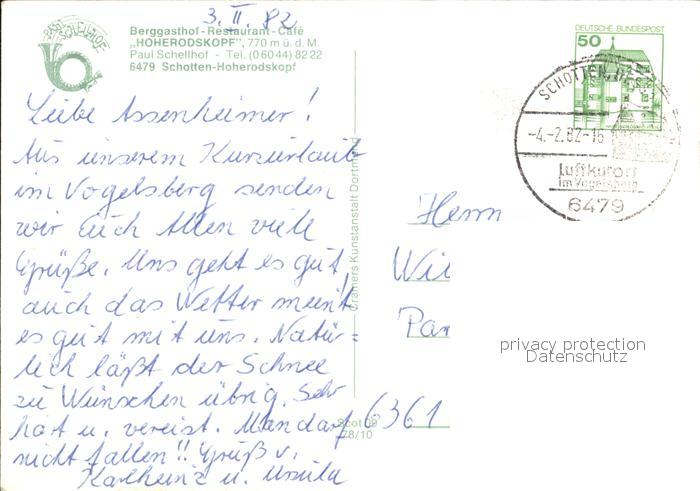 3. II. 82
Berggasthof - Restaurant - Café
„HOHERODSKOPF", 770 m ü. d. M.
Paul Schellhof - Tel. (0 60 44) 82 22
6479 Schotten-Hoherodskopf
DEUTSCHE BUNDESPOST
50
SCHOTTEN, HESS
-4.-2.82-16
Luftkurort
im Vogelsberg
6479
Liebe Assenheimer!
Aus unserem Kurzurlaub
im Vogelsberg senden
wir Euch Allen viele
Grüße. Uns geht es gut,
auch das Wetter meint
es gut mit uns. Natür=
lich läßt der Schnee
zu Wünschen übrig. Sehr
hart u. vereist. Man darf
nicht fallen!! Gruß v.
Karlheinz u. Ursula
Cramers Kunstanstalt Dortmund
Scot 09
78/10
Herrn
Wil
Par
6361
privacy protection
Datenschutz